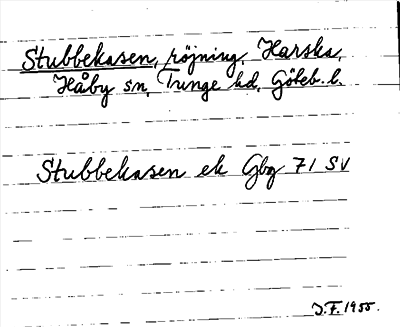 Stubbekasen, röjning, Harska,
Håby sn, Tunge hd, Göteb. l.
Stubbekasen ek Gbg 71 SV
J.F. 1955.